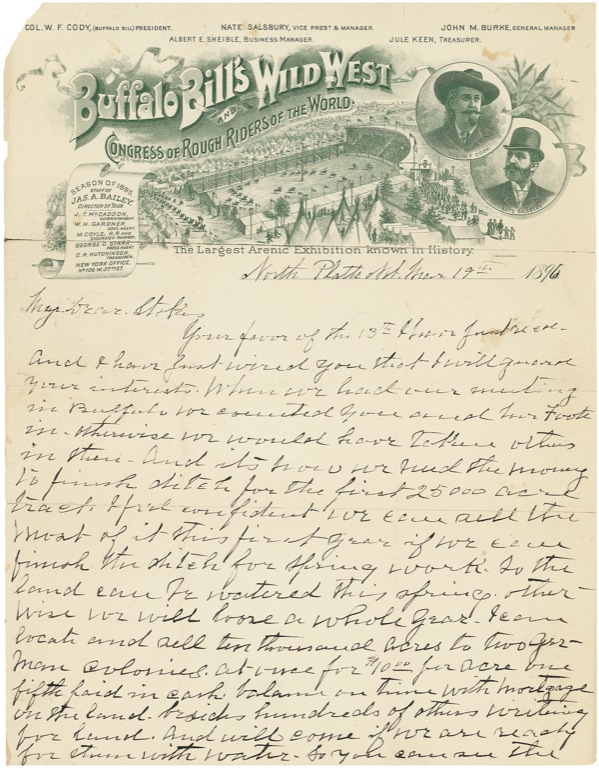 COL. W. F. CODY, (BUFFALO BILL) PRESIDENT. NATE SALSBURY, VICE PREST & MANAGER. JOHN M. BURKE, GENERAL MANAGER.
ALBERT E. SHEIBLE, BUSINESS MANAGER. JULE KEEN, TREASURER.
Buffalo Bill's Wild West
AND
CONGRESS OF ROUGH RIDERS OF THE WORLD.
COL. W. F. CODY.
NATE SALSBURY
SEASON OF 1895
STAFF OF
JAS. A. BAILEY,
DIRECTOR OF TOUR.
J. T. McCADDON,
W. H. GARDNER,
GENL. AGENT.
M. COYLE, R.R. AND
EXCURSION MANAGER.
GEORGE O. STARR,
PRESS AGENT.
C. R. HUTCHINSON,
TREASURER.
NEW YORK OFFICE,
No 106 W. 37TH ST.
The Largest Arenic Exhibition known in History.
North Platte Neb. Mar 19th 1896
My Dear Stokes
Your favor of the 13th I have just recd.
And I have just wired you that I will guard
your interests. When we had our meeting
in Buffalo we counted you and Mr Foote
in. otherwise we would have taken others
in then. And its now we need the money
to finish ditch for the first 25000 acre
tract. I feel confident we can sell the
most of it this first year if we can
finish the ditch for spring work. So the
land can be watered this spring. other-
wise we will loose a whole year. I can
locate and sell ten thousand acres to two Ger-
man colonies. at once for $10.00 per acre one
fifth paid in cash balance on time with mortgage
on the land. besides hundreds of others writing
for land. And will come if we are ready
for them with water. So you can see the